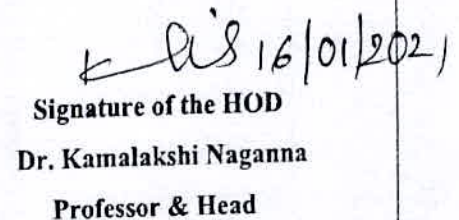 16/01/2021
Signature of the HOD
Dr. Kamalakshi Naganna
Professor & Head